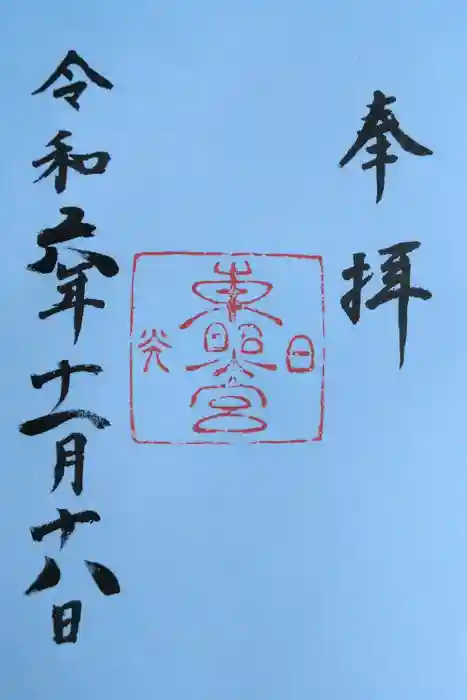 奉拝
日
東照宮
令和六年十一月十八日